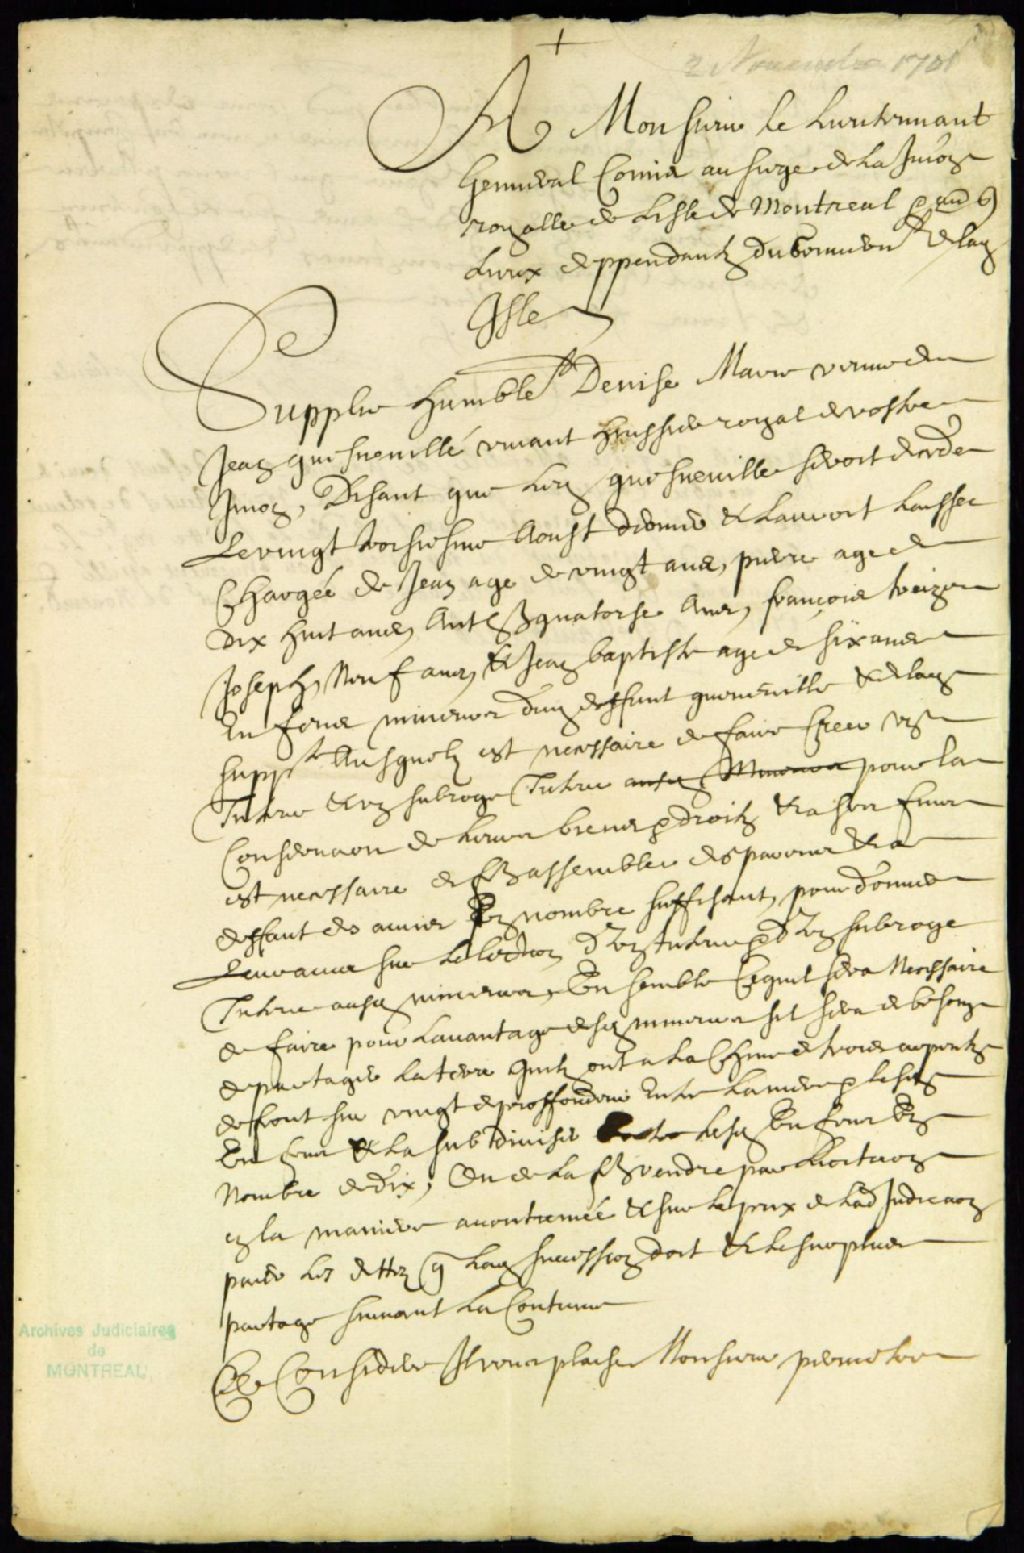 2 Novembre 1701
A Monsieur le Lieutennant
General Comis au siege de la Juron
royalle de Lisle de Montreal et aues
Lieux deppendants du bornement de lad
Isle
Supplie humblemt Denise Marie veuve de
Jean quesneuille vivant huissier royal de vostre
Juron, Disant que led quesneuille seroit decede
Le vingt troisiesme Aoust dernier & lauroit laissee
Chargée de Jean age de vingt ans, pierre age de
dix huit ans, quatorse ans, françois treize
Joseph, Neuf ans, & Jean baptiste age de six ans
Enfens mineurs dud deffunt quenneuille & de lad
suppte Ausquels est necessaire de faire Creer vn
Tuteur & vn subroge Tuteur ausd Mineurs pour la
Conservaon de leurs biens & droits & a son fins
est necessaire de fe assembler des parens & a
deffaut des amis En nombre suffisant, pour donner
Leurs auis sur Lelection dvn tuteur & dvn subroge
Tuteur ausd mineurs, Ensemble Cequil sera Necessaire
de faire pour lauantage desd mineurs sil sera de besoing
de partager la terre quils ont a la Chine de trois arpents
de front sur vingt de proffondeur Entre la mere & lesd
Enfens & la subdiuiser lesd Enfens En
Nombre de dix, Ou de la fe vendre par licitaon
en la maniere accoutumée & sur le prix de Ladjudicaon
paier les dettes q lad succession doit & le surplus
partage suiuant la Coutume
Ce Consideré Il vous plaise Monsieur permettre
Archives Judiciaires
de
MONTREAL